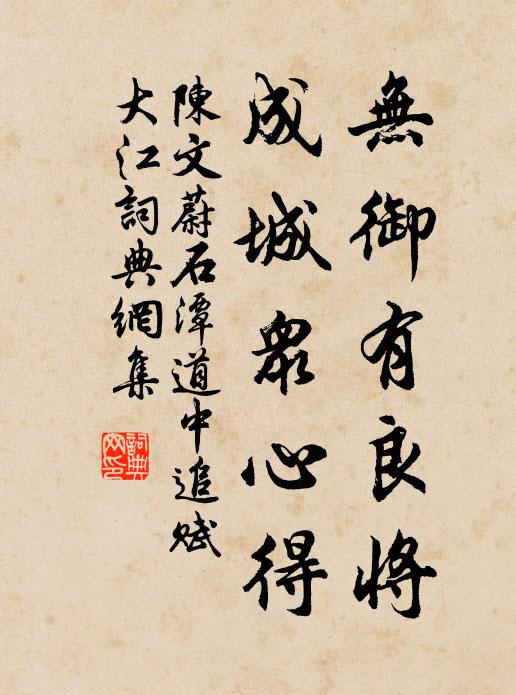 無御有良將
成城眾心得
陳文蔚石潭道中追賦
大江詞典網集
詞典網印